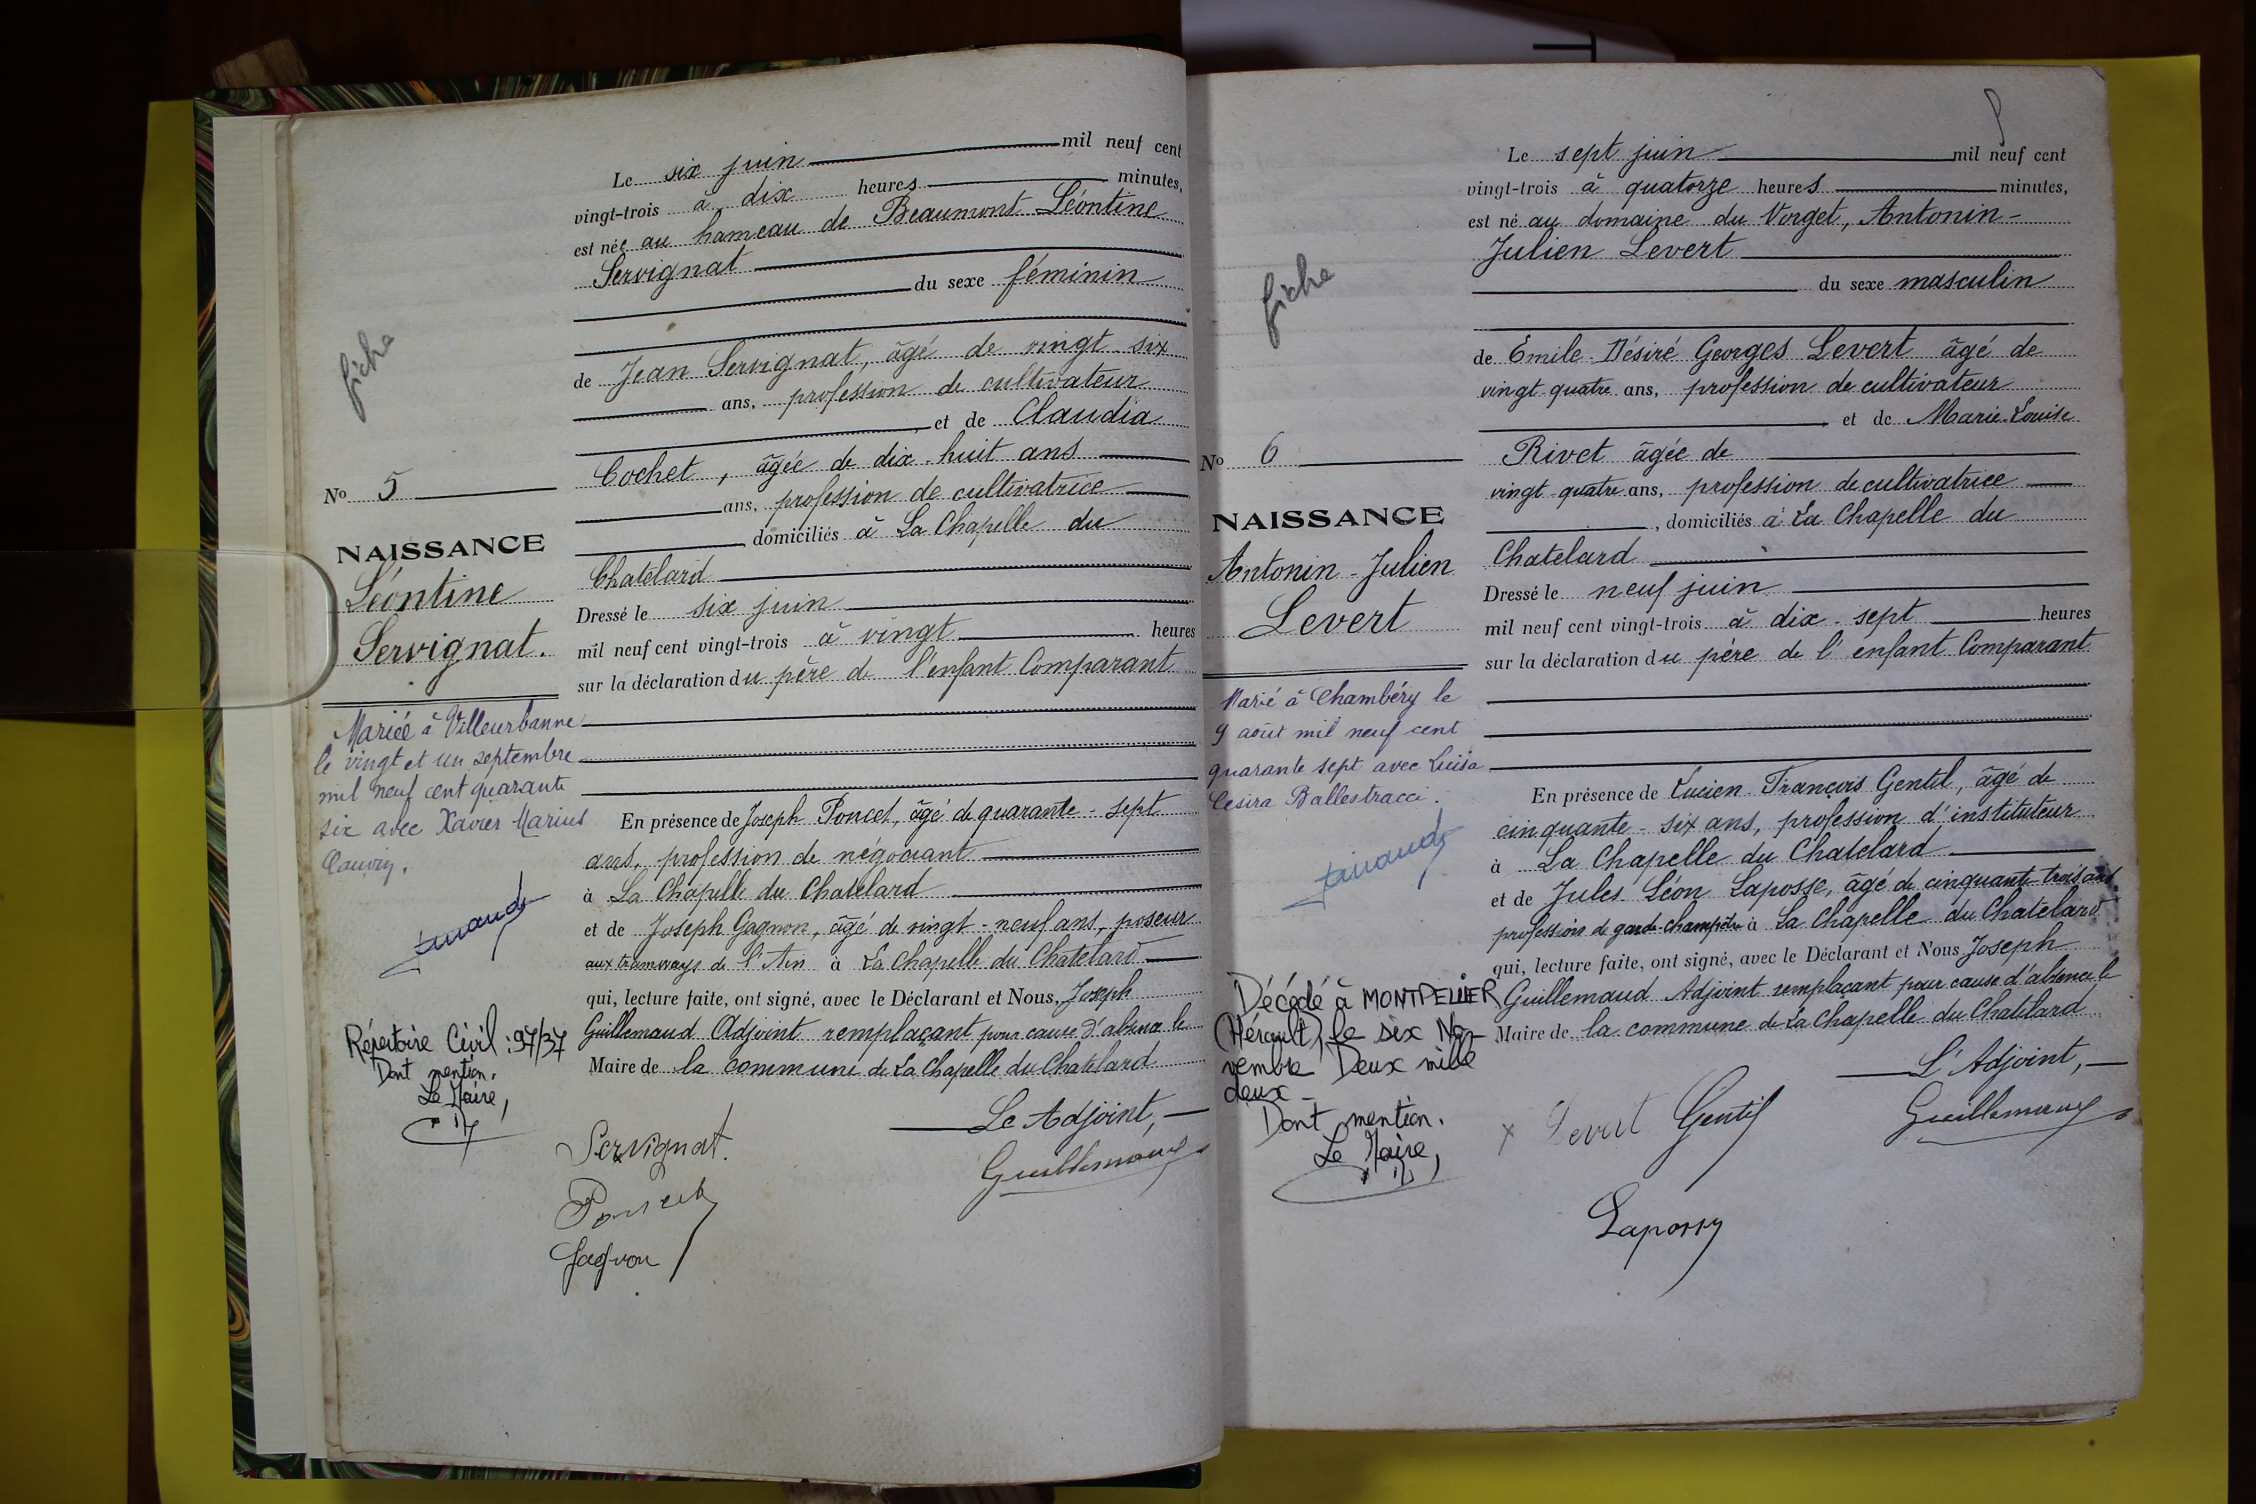 fiche
No 5
NAISSANCE
Léontine
Servignat.
Mariée à Villeurbanne
le vingt et un septembre
mil neuf cent quarante
six avec Xavier Marius
Répertoire Civil : 97/37
Dont mention.
Le Maire,
Le six juin mil neuf cent
vingt-trois à dix heures minutes,
est née au hameau de Beaumont Léontine
Servignat
du sexe féminin
de Jean Servignat, âgé de vingt-six
ans, profession de cultivateur
et de Claudia
Cochet, âgée de dix-huit ans
ans, profession de cultivatrice
domiciliés à La Chapelle du
Chatelard
Dressé le six juin
mil neuf cent vingt-trois à vingt heures
sur la déclaration du père de l'enfant Comparant
En présence de Joseph Poncet, âgé de quarante-sept
ans, profession de négociant
à La Chapelle du Chatelard
et de Joseph Gagnon, âgé de vingt-neuf ans, poseur
aux tramways de l'Ain à La Chapelle du Chatelard
qui, lecture faite, ont signé, avec le Déclarant et Nous, Joseph
Guillemaud Adjoint remplaçant pour cause d'absence le
Maire de la commune de La Chapelle du Chatelard
Le Adjoint,
Servignat.
Guillemaud
Poncet
Gagnon
fiche
No 6
NAISSANCE
Antonin-Julien
Levert
Marié à Chambéry le
9 août mil neuf cent
quarante sept avec Luisa
Cesira Ballestracci.
Décédé à MONTPELLIER
(Hérault), le six No-
vembre Deux mille
deux
Dont mention.
Le Maire,
Le sept juin mil neuf cent
vingt-trois à quatorze heures minutes,
est né au domaine du Vorget, Antonin-
Julien Levert
du sexe masculin
de Émile Désiré Georges Levert âgé de
vingt-quatre ans, profession de cultivateur
et de Marie-Louise
Rivet âgée de
vingt-quatre ans, profession de cultivatrice
, domiciliés à La Chapelle du
Chatelard
Dressé le neuf juin
mil neuf cent vingt-trois à dix-sept heures
sur la déclaration du père de l'enfant Comparant
En présence de Lucien François Gentil, âgé de
cinquante-six ans, profession d'instituteur
à La Chapelle du Chatelard
et de Jules Léon Laposse, âgé de cinquante-trois ans
profession de garde-champêtre à La Chapelle du Chatelard
qui, lecture faite, ont signé, avec le Déclarant et Nous Joseph
Guillemaud Adjoint remplaçant pour cause d'absence le
Maire de la commune de La Chapelle du Chatelard
L'Adjoint,
x Levert Gentil Guillemaud
Laposse